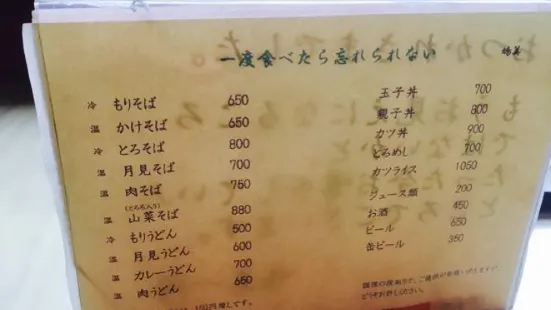 一度食べたら忘れられない
冷 もりそば 650
温 かけそば 650
冷 とろそば 800
温 月見そば 700
温 肉そば 750
(とろろ入り)
温 山菜そば 880
冷 もりうどん 500
温 月見うどん 600
温 カレーうどん 700
温 肉うどん 650
150円増しです。
玉子丼 700
親子丼 800
カツ丼 900
とろめし 700
カツライス 1050
ジュース類 200
お酒 450
ビール 650
缶ビール 350
どうぞお許しください。